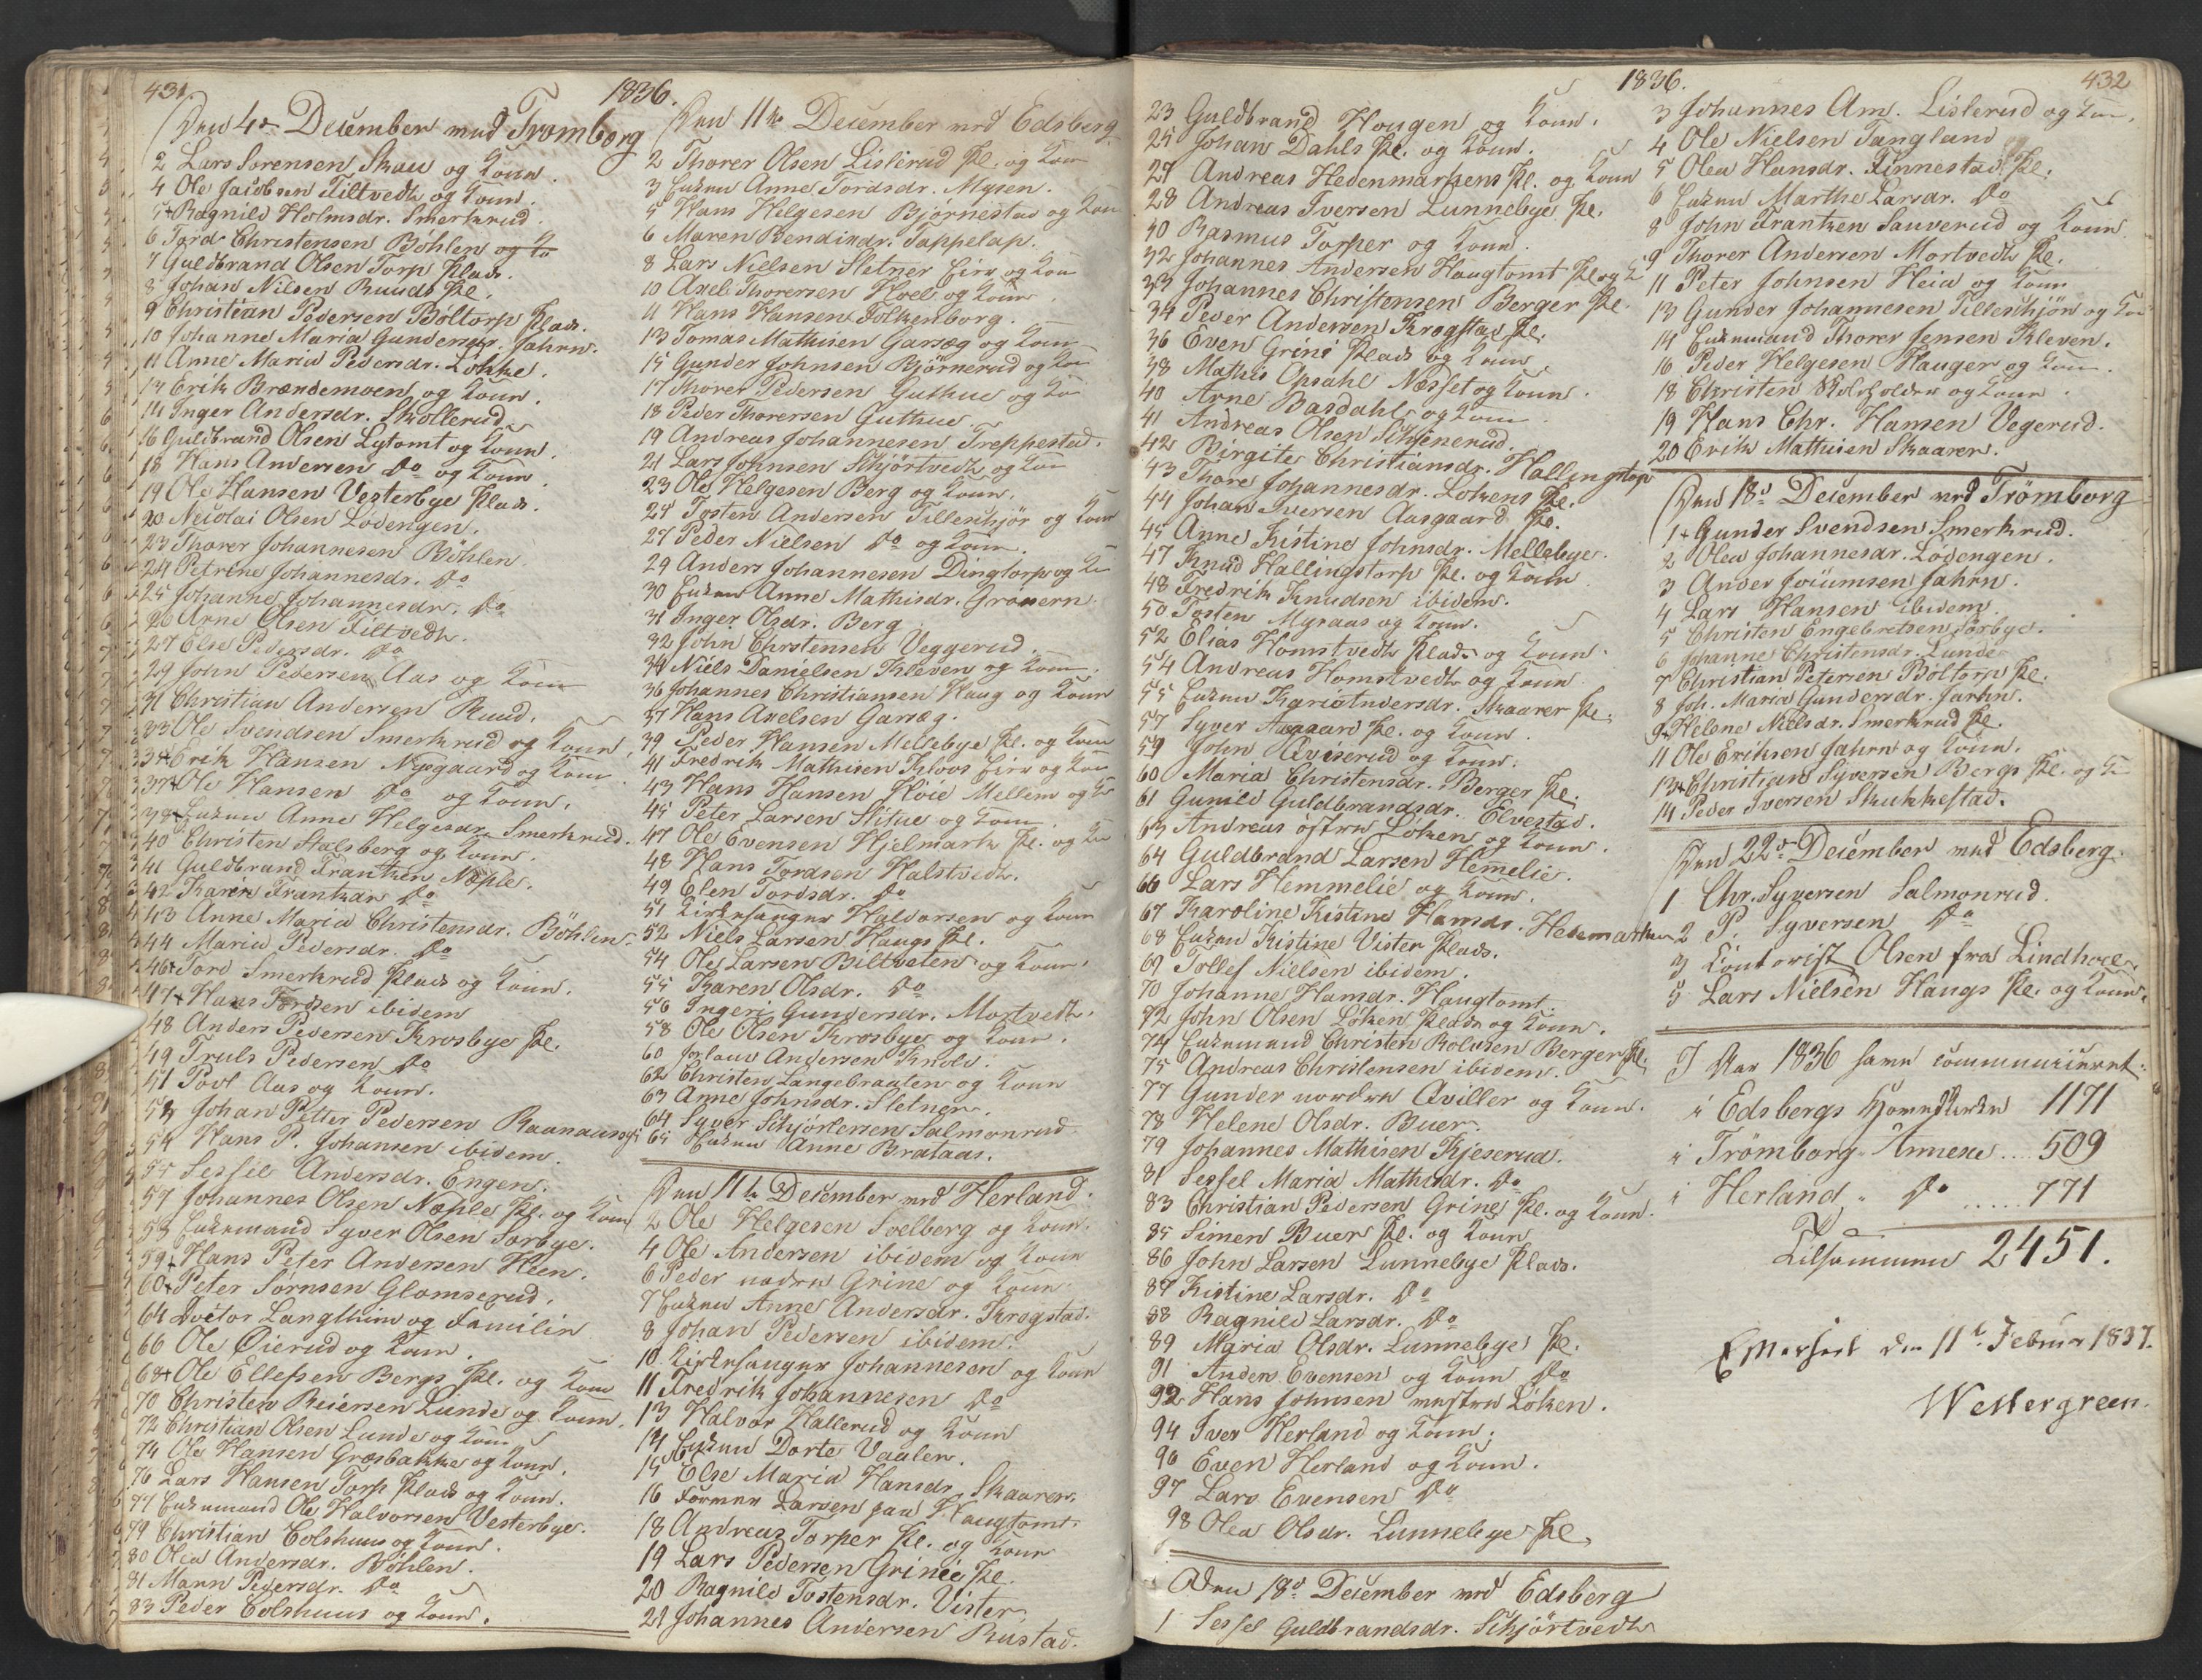 431
1836.
Den 4de December ved Trømborg
2 Lars Sørensen Skau og Kone.
4 Ole Jacobsen Tiltvedt og Kone.
5+ Ragnild Holmsdr. Smerkrud.
6 Tord Christensen Bøhlen og Ko
7 Guldbrand Olsen Torp Plads.
8 Johan Nilsen Ruuds Pl.
9 Christian Pedersen Boltorp Plads.
10 Johanne Maria Gundersdr. Jahrn.
11 Anne Maria Pedersdr. Løkke.
13 Erik Brændemoen og Kone.
14 Inger Andersdr. Skollerud.
16 Guldbrand Olsen Lytomt og Kone.
18 Hans Andersen Do og Kone.
19 Ole Hansen Vesterbye Plads.
20 Nicolai Olsen Lødengen.
23 Thorer Johannesen Bøhlen.
24 Petrine Johannesdr. Do
25 Johanne Johannesdr. Do
26 Arne Olsen Tiltvedt.
27 Else Pedersdr. Do
29 John Pedersen Aas og Kone
31 Christian Andersen Ruud.
33 Ole Svendsen Smerkrud og Kone
35+ Erik Hansen Nygaard og Kone
37+ Ole Hansen Do og Kone.
38+ Enken Anne Helgesdr. Smerkrud.
40 Christen Stalsberg og Kone.
41 Guldbrand Frantzen Næple.
42 Karen Frantzdr. Do
43 Anne Maria Christensdr. Bøhlen.
44 Maria Pedersdr. Do
46+ Tord Smerkrud Plads og Kone.
47+ Hans Tordsen ibidem
48 Anders Pedersen Krosbye Pl.
49 Truls Pedersen Do
51 Povl Aas og Kone.
53 Johan Petter Pedersen Raanaas
54 Hans P. Johansen ibidem.
55 Sessie Andersdr. Engen.
57 Johannes Olsen Næple Pl. og Kone
58 Enkemand Syver Olsen Sørbye.
59+ Hans Peter Andersen Heen.
60+ Peter Sørnsen Glomserud.
64 Doctor Langthim og Familie
66 Ole Øierud og Kone.
68+ Ole Ellefsen Bergs Pl. og Kone
70 Christen Reiersen Lunde og Kone.
72 Christian Olsen Lunde og Kone
74 Ole Hansen Græsbakke og Kone.
76 Lars Hansen Torp Plads og Kone.
77 Enkemand Ole Halvorsen Vesterbye.
79 Christian Colshuus og Kone.
80 Olea Andersdr. Bøhlen.
81 Maren Pedersdr. Do
83 Peder Colshuus og Kone.
Den 11te December ved Edsberg
2 Thorer Olsen Lislerud Pl. og Kone
3 Enken Anne Tordsdr. Mysen.
5 Hans Helgesen Bjørnestad og Kone
6 Maren Bendixdr. Tappelap.
8 Lars Nielsen Sletner Eier og Kone
10 Axel Thorersen Hoel og Kone.
11 Hans Hansen Folkenborg.
13 Tomas Mathisen Garsæg og Kone
15 Gunder Johnsen Bjørnerud og Kone
17 Thorer Pedersen Guthue og Ko
18 Peder Thorersen Guthue
19 Andreas Johannesen Treppestad.
21 Lars Johnsen Schjørtvedt og Kone
23 Ole Helgesen Berg og Kone.
25 Tosten Andersen Tilleschjør og Kone
27 Peder Nielsen Do og Kone.
29 Anders Johannesen Dingtorp og Ko
30 Enken Anne Mathisdr. Grønern.
31 Inger Olsdr. Berg.
32 John Chrstensen Veggerud.
34 Niels Danielsen Kleven og Kone.
36 Johannes Christiansen Haug og Kone
37 Hans Axelsen Garsæg.
39 Peder Hansen Mellebye Pl. og Kone
41 Fredrik Mathisen Kloos Eier og Kone
43 Hans Hansen Høie Mellem og Ko
45 Peter Larsen Slitue og Kone.
47 Ole Evensen Hjelmark Pl. og Ko
48 Hans Tordsen Halstvedt.
49 Elen Tordsdr. Do
51 Kirkesanger Halvorsen og Kone
52 Niels Larsen Haugs Pl.
54 Ole Larsen Biltveten og Kone.
55 Karen Olsdr. Do
56 Ingeri Gundersdr. Mortvedt.
58 Ole Olsen Krosbye og Kone.
60 Jorlaus Andersen Knold.
62 Christen Langebraaten og Kone
63 Anne Johnsdr. Sletner.
64 Syver Schjørtersen Salmonrud.
65 Enken Anne Brataas.
Den 11te December ved Herland.
2 Ole Helgesen Solberg og Kone.
4 Ole Andersen ibidem og Kone
6 Peder nedre Grine og Kone
7 Enken Anne Andersdr. Krogstad.
8 Johan Pedersen ibidem.
10 Kirkesanger Johannesen og Kone
11 Fredrik Johannesen Do
13 Halvor Hallerud og Kone
14 Enken Dorte Vaaler.
15 Else Maria Hansdr. Skaarer.
16 Former Larsen paa Haugtomt.
18 Andreas Torper Pl. og Kone
19 Lars Pedersen Grinie Pl.
20 Ragnild Tostensdr. Vister.
21 Johannes Andersen Rustad.
1836.
432
23 Guldbrand Hougen og Kone.
25 Johan Dahls Pl. og Kone.
27 Andreas Hedenmarkens Pl. og Kone
28 Andreas Iversen Lunnebye Pl.
30 Rasmus Torper og Kone.
32 Johannes Andersen Haugtomt Pl og K
33 Johannes Christensen Berger Pl.
34 Peder Andersen Krogstad Pl.
36 Even Grini Plads og Kone
38 Mathis Opsahl Næsset og Kone.
40 Arne Basdahl og Kone
41 Andreas Olsen Schienerud.
42 Birgite Christiansdr. Hallingstorp
43 Thore Johannesdr. Løkens Pl.
44 Johan Iversen Aasgaard Pl.
45 Anne Kistine Johnsdr. Mellebye.
47 Knud Hallingstorp Pl. og Kone
48 Fredrik Knudsen ibidem.
50 Tosten Myraas og Kone.
52 Elias Homstvedt Plads og Kone.
54 Andreas Homstvedt og Kone
55 Enken Kari Andersdr. Skaarer Pl.
57 Syver Aasgaard Pl. og Kone.
59 John Qviserud og Kone.
60 Maria Christensdr. Berger Pl.
61 Gunild Guldbrandsdr. Elvestad.
63 Andreas østre Løken og Kone.
64 Guldbrand Larsen Hemmelie.
66 Lars Hemmelie og Kone.
67 Karoline Kistine Hansdr. Hedemarken
68 Enken Kistine Vister Plads.
69 Tollef Nielsen ibidem.
70 Johanne Hansdr. Haugtomt
72 John Olsen Løken Plads og Kone.
74 Enkemand Christen Rolvsen Berger Pl.
75 Andreas Christensen ibidem.
77 Gunder nordre Qviller og Kone.
78 Helene Olsdr. Buer.
79 Johannes Mathisen Kjeserud.
81 Sessel Maria Mathisdr. Do
83 Christian Pedersen Grine Pl. og Kone.
85 Simen Buer Pl. og Kone
86 John Larsen Lunnebye Plads.
87 Kistine Larsdr. Do
88 Ragnild Larsdr. Do
89 Maria Olsdr. Lunnebye Pl.
91 Anders Evensen og Kone Do
92 Hans Johnsen mestre Løken.
94 Iver Herland og Kone.
96 Even Herland og Kone.
97 Lars Evensen Do
98 Olea Olsdr. Lunnebye Pl.
Den 18de December ved Edsberg
1 Sessel Guldbrandsdr. Schjørtvedt
3 Johannes Am. Lislerud og Kone.
4 Ole Nielsen Tangland
5 Olea Hansdr. Finnestad Pl.
6 Enken Marthe Larsdr. Do
8 John Frantzen Sauverud og Kone
9 Thorer Andersen Mortvedt Pl.
11 Peter Johnsen Heia og Kone
13 Gunder Johannesen Tilleschjør og Ko
14 Enkemand Thorer Jensen Kleven.
16 Peder Helgesen Hauger og Kone.
18 Christen Kolskolden og Kone.
19 Hans Chr. Hansen Vegerud.
20 Erik Mathisen Skaarer.
Den 18de December ved Trömborg
1+ Gunder Svendsen Smerkrud.
2 Olea Johannesdr. Lodengen.
3 Ander Joiumsen Jahrn.
4 Lars Hansen ibidem.
5 Christen Engebretsen Sørbye.
6 Johanne Christensdr. Lunde
7 Christian Petersen Boltorp Pl.
8 Joh. Maria Gundersdr. Jarhn.
9+ Helene Nielsdr. Smerkrud Pl.
11 Ole Eriksen Jahrn og Kone.
13+ Christian Syversen Bergs Pl. og K
14 Peder Iversen Skukkestad.
Den 22de December ved Edsberg.
1 Chr. Syversen Salmonrud.
2 P. Syversen Do
3 Contorist Olsen fra Lindhoel.
5 Lars Nielsen Haugs Pl. og Kone.
I Aar 1836 have communiceret:
i Edsbergs Hovedkirke 1171
i Trömborg Annexe .... 509
i Herland " Do ..... 771
Tilsammen 2451.
Efterseet den 11te Februar 1837.
Wettergreen.